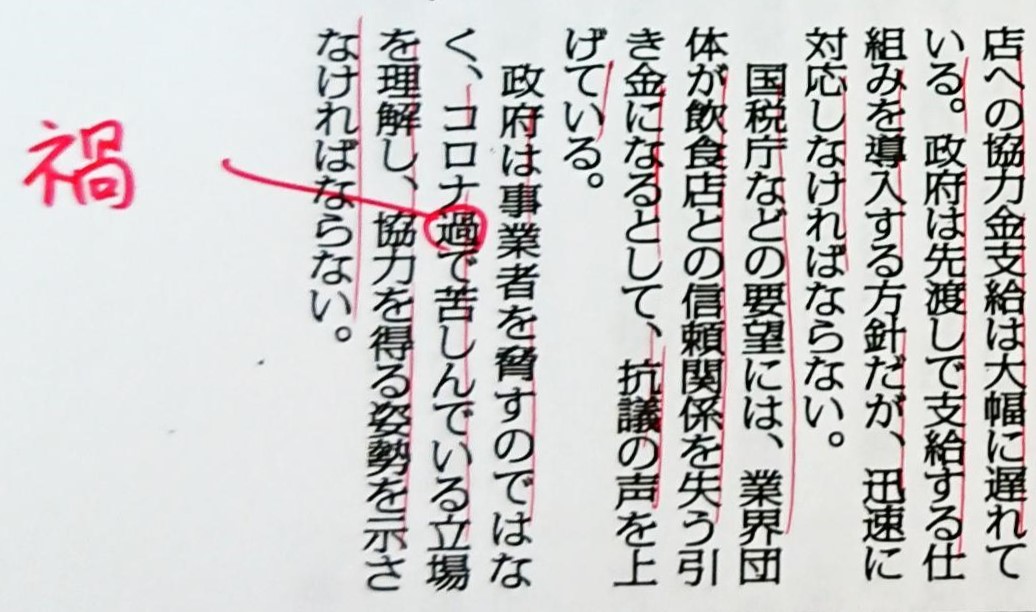 店への協力金支給は大幅に遅れて
いる。政府は先渡しで支給する仕
組みを導入する方針だが、迅速に
対応しなければならない。
国税庁などの要望には、業界団
体が飲食店との信頼関係を失う引
き金になるとして、抗議の声を上
げている。
政府は事業者を脅すのではな
く、コロナ過で苦しんでいる立場
を理解し、協力を得る姿勢を示さ
なければならない。
禍